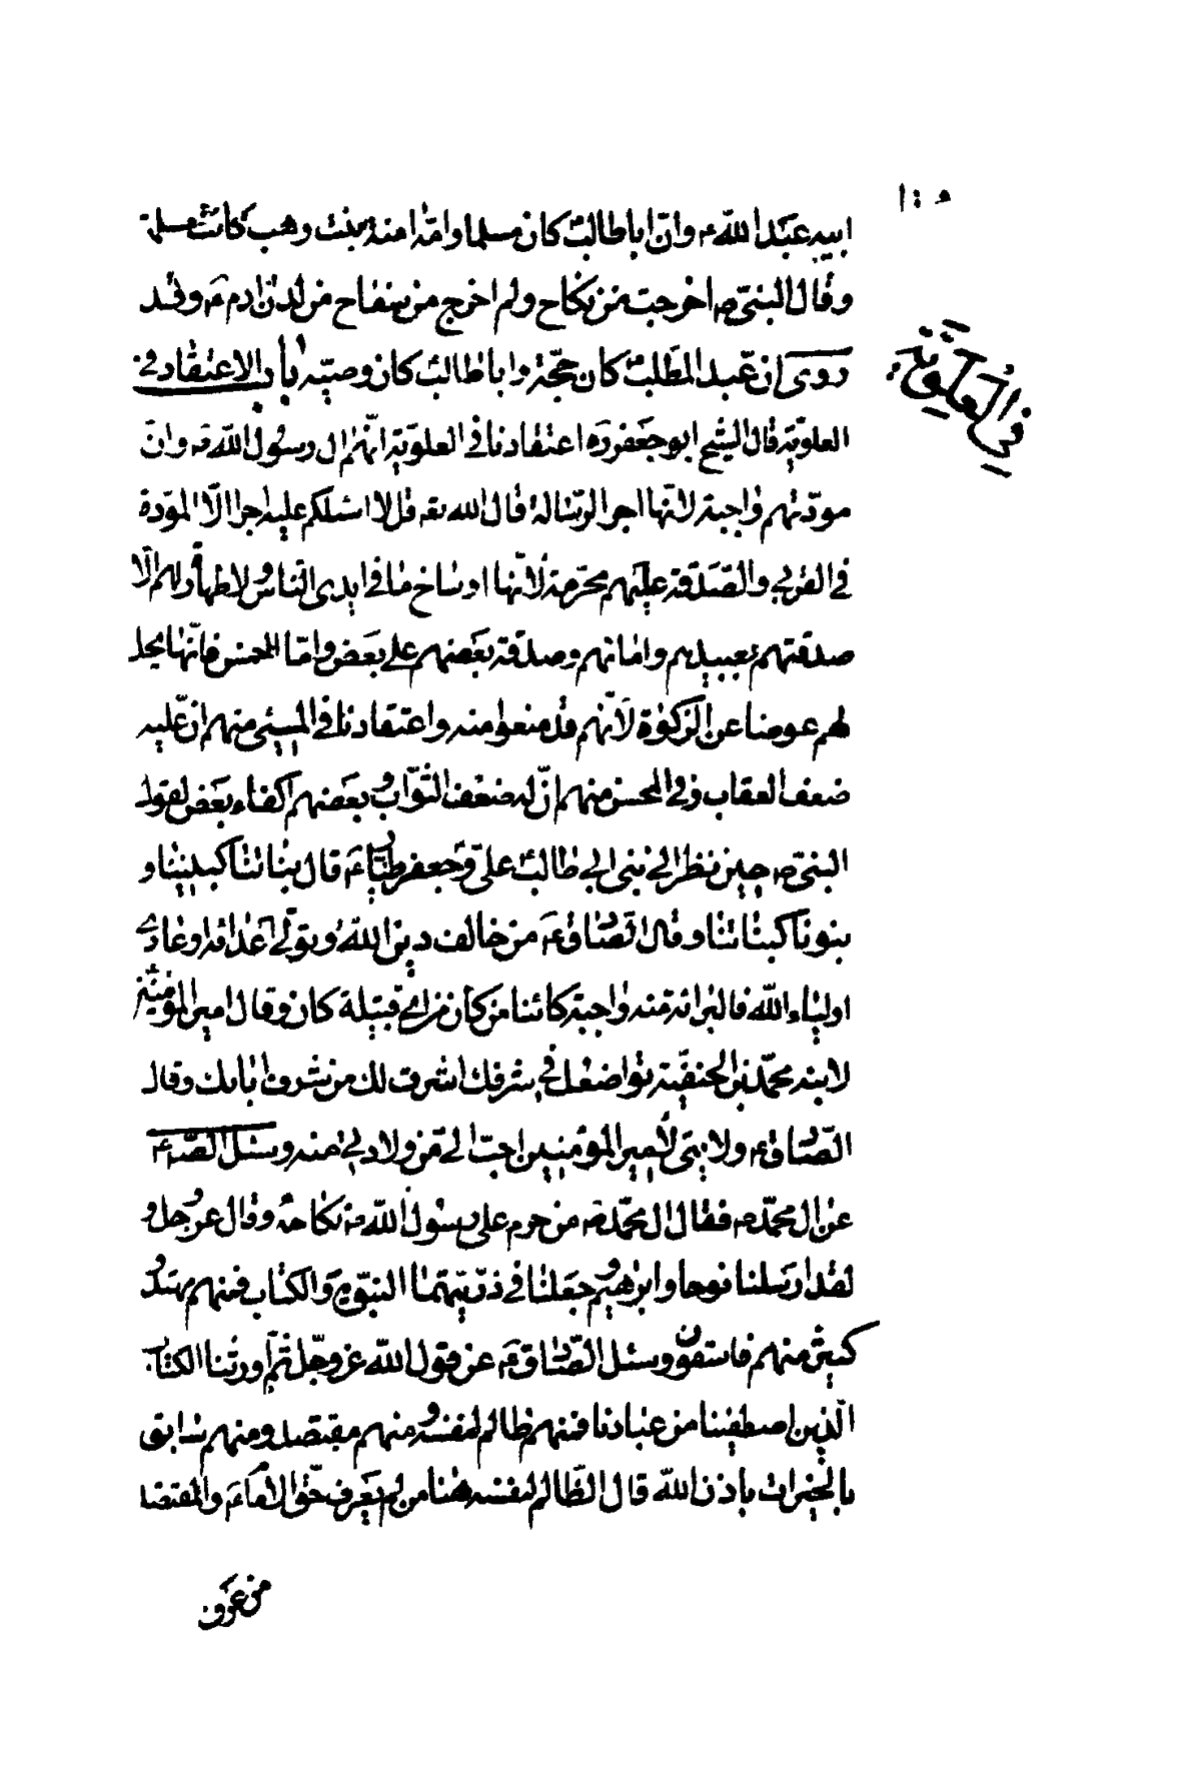 ١٠٥
ابيه عبد الله ع وانّ ابا طالب كان مسلما وامّه امنة بنت وهب كانت مسلمة
وقال النبىّ ص اخرجت من نكاح ولم اخرج من سفاح من لدن ادم ع وقد
روى ان عبد المطّلب كان حجّة وابا طالب كان وصيّه باب الاعتقاد فى
فى العلويّة
العلويّة قال الشيخ ابو جعفر ره اعتقادنا فى العلويّة انّهم ال رسول الله ص وانّ
مودّتهم واجبة لانّها اجر الرّسالة قال الله تعه قل لا اسئلكم عليه اجرا الّا المودّة
فى القربى والصّدقة عليهم محرّمة لانّها اوساخ ما فى ايدى النّاس وطهارة لهم الّا
صدقتهم لعبيدهم وامائهم وصدقة بعضهم على بعض وامّا الخمس فانّها يحلّ
لهم عوضا عن الزّكوة لانّهم قد منعوا منه واعتقادنا فى المسيئى منهم انّ عليه
ضعف العقاب وفى المحسن منهم انّ له ضعف الثّواب وبعضهم اكفاء بعض لقول
النبىّ ص حين نظر الى بنى ابى طالب علىّ وجعفر طيّار ع قال بناتنا كبنينا و
بنونا كبناتنا وقال الصّادق ع من خالف دين الله وتولّى اعدائه او عادى
اولياء الله فالبرائة منه واجبة كائنا من كان من اىّ قبيلة كان وقال امير المؤمنين
لابنه محمّد بن الحنفيّة تواضعك فى شرفك اشرف لك من شرف ابائك وقال
الصّادق ع ولايتى لامير المؤمنين احبّ الىّ من ولادتى منه وسئل الصّادق ع
عن ال محمّد ص فقال ال محمّد ص من حرم على رسول الله ص نكاحه وقال عزّ وجلّ و
لقد ارسلنا نوحا وابرهيم وجعلنا فى ذرّيّتهما النبوّة والكتاب فمنهم مهتد و
كثير منهم فاسقون وسئل الصّادق ع عن قول الله عزّ وجلّ ثمّ اورثنا الكتاب
الّذين اصطفينا من عبادنا فمنهم ظالم لنفسه ومنهم مقتصد ومنهم سابق
بالخيرات باذن الله قال الظّالم لنفسه هنا من لم يعرف حقّ الامام ع والمقتصد
من عرف